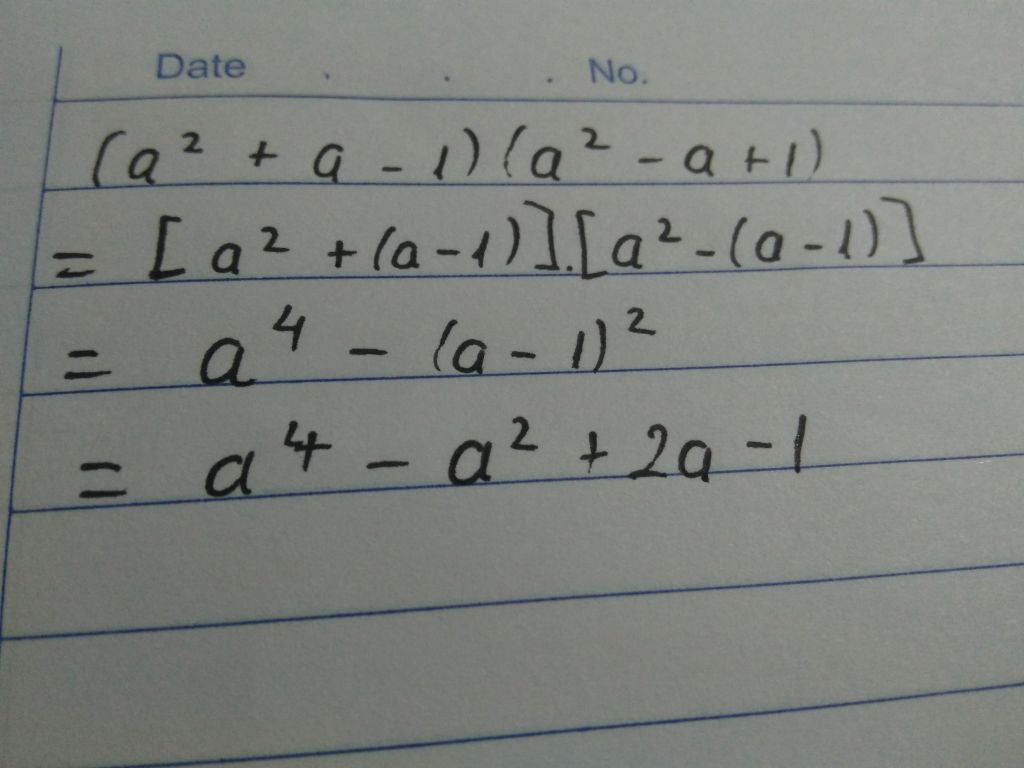 Date . . . No.
(a² + a - 1)(a² - a + 1)
= [a² + (a - 1)].[a² - (a - 1)]
= a⁴ - (a - 1)²
= a⁴ - a² + 2a - 1